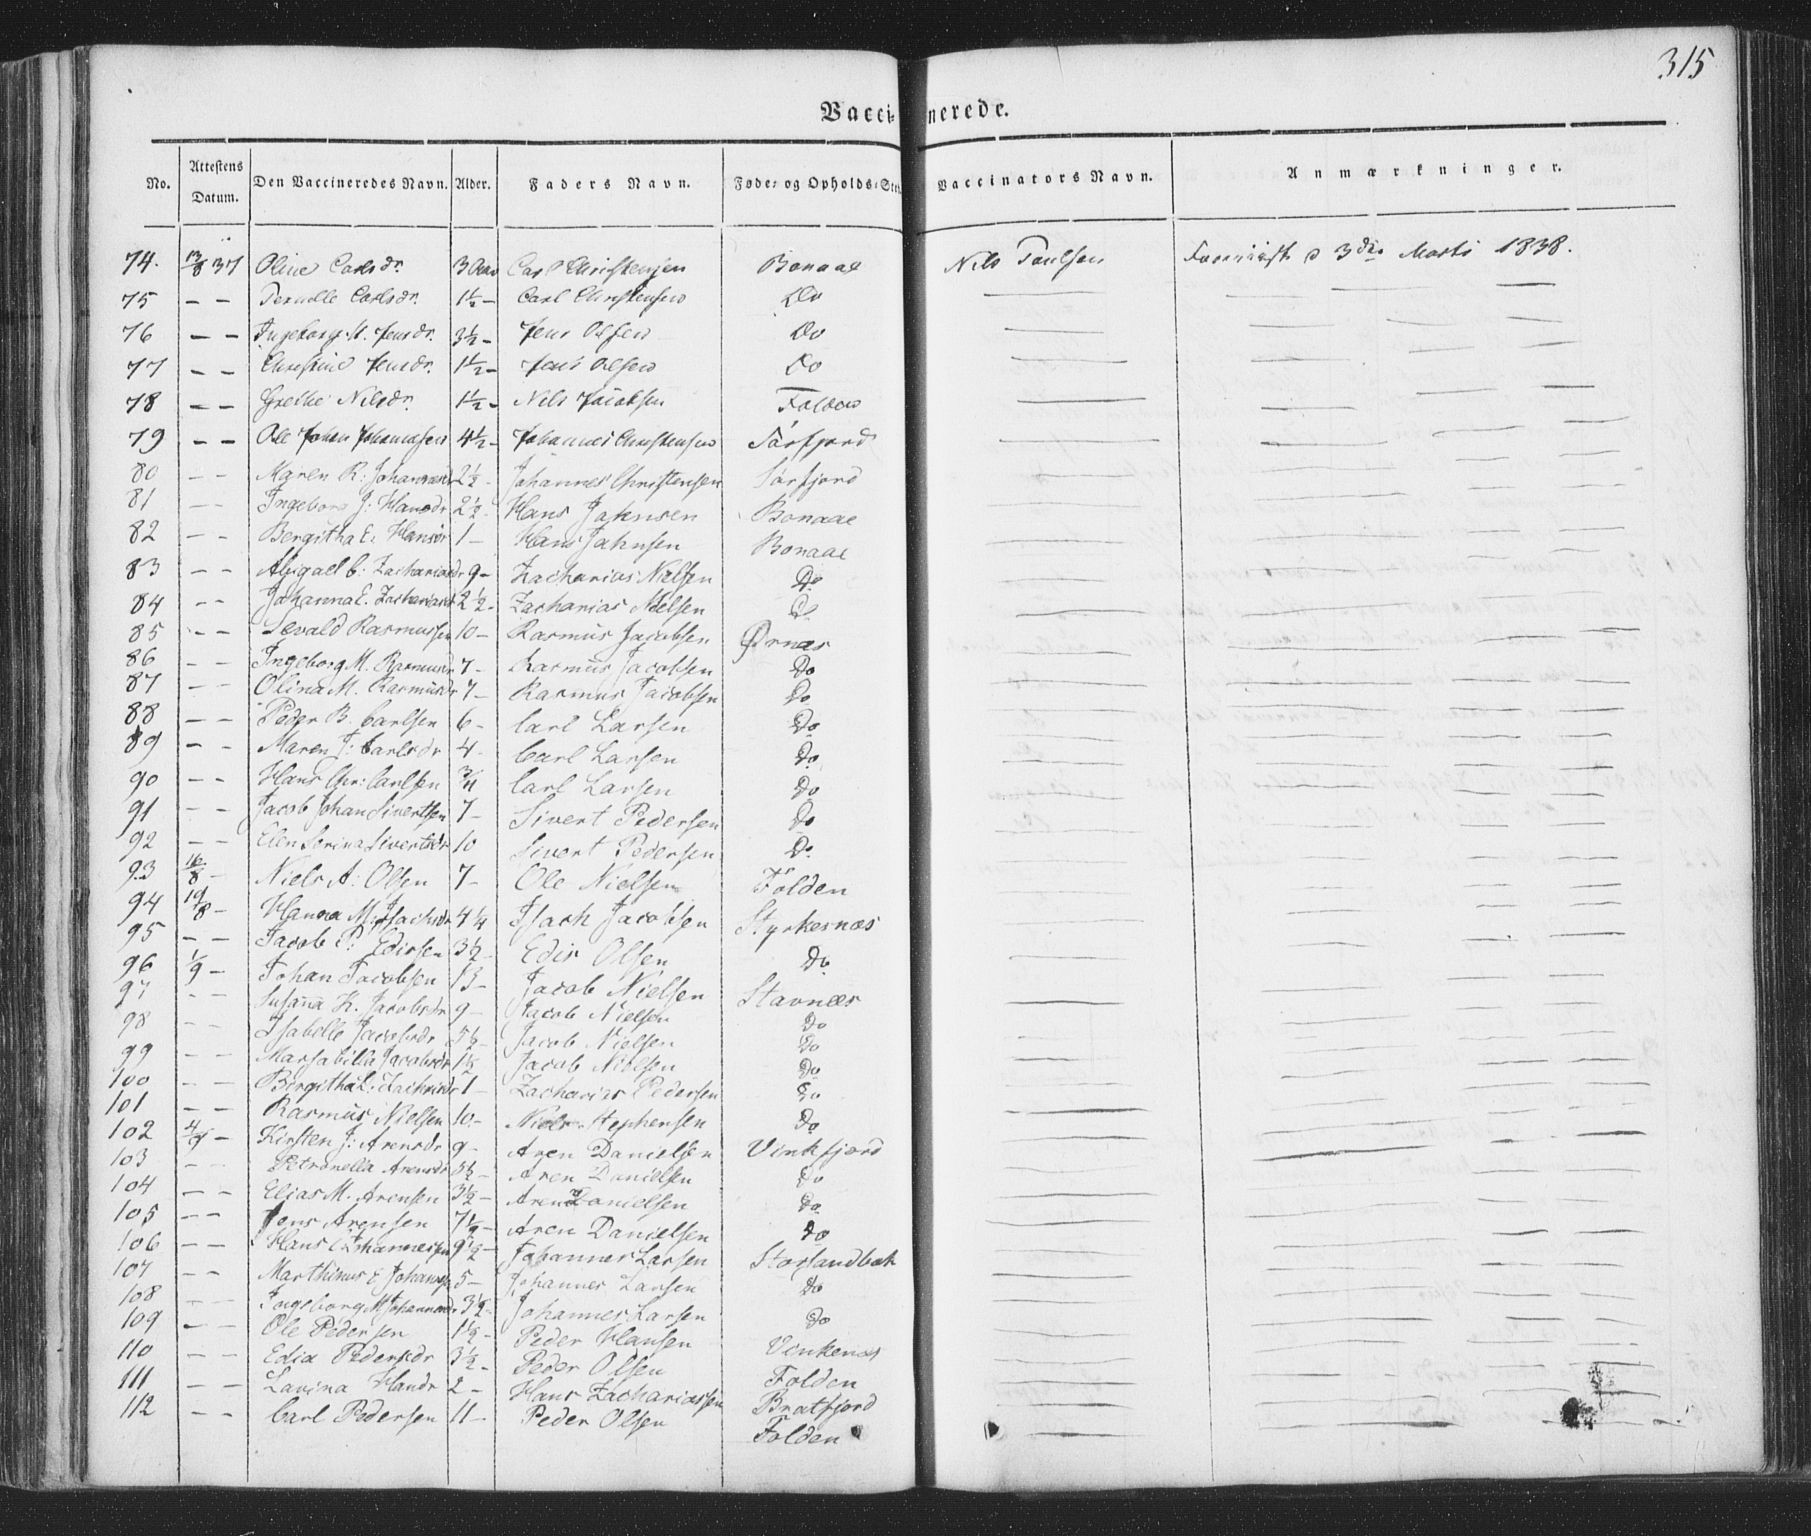 315
Vaccinerede.
No. Attestens Datum. Den Vaccineredes Navn. Alder. Faders Navn. Føde- og Opholds-Sted Vaccinators Navn. Anmærkninger.
74. 13/8 37 Oline Carlsdr. 3 Aar Carl Christensen Bonaae Nils Poulsen 3die Marts 1838.
75 – – Pernille Carlsdr. 1½ – Carl Christensen Do
76 – – Ingeborg M. Jensdr. 3½ – Jens Olsen Do
77 – – Christine Jensdr. 1½ – Jens Olsen Do
78 – – Grethe Nilsdr. 1½ – Nils Jacobsen Folden
79 – – Ole Johan Johannesen 4½ – Johannes Christensen Sørfjord
80 – – Maren R: Johannesdr 2½ – Johannes Christensen Sørfjord
81 – – Ingebor J: Hansdr 2½ – Hans Johnsen Bonaae
82 – – Bergitha E. Hansdr 1 – Hans Johnsen Bonaae
83 – – Abigael C: Zachariasdr 9 – Zacharias Nielsen Do
84 – – Johanna E. Zachariasdr 2½ – Zacharias Nielsen Do
85 – – Sevald Rasmussen 10 – Rasmus Jacobsen Ørnes
86 – – Ingeborg M. Rasmusdr 7 – Rasmus Jacobsen Do
87 – – Olina M. Rasmusdr 7 – Rasmus Jacobsen Do
88 – – Peder B. Carlsen 6 – Carl Larsen Do
89 – – Maren J: Carlsdr 4 – Carl Larsen Do
90 – – Hans Chr: Carlsen ¾ Carl Larsen Do
91 – – Jacob Johan Sivertsen 7 – Sivert Pedersen Do
92 – – Elen Serina Sivertsdr 10 Sivert Pedersen Do
93 16/8 – Niels A: Olsen 7 – Ole Nielsen Folden
94 19/8 – Hanna M: Isachsdr 4¼ Isach Jacobsen Styrkesnæs
95 – – Jacob P: Edisen 3½ – Edis Olsen Do
96 1/9 – Johan Jacobsen 13 – Jacob Nielsen Stavnæs
97 – – Susanna K. Jacobsdr 9 – Jacob Nielsen Do
98 – – Isabelle Jacobsdr 5½ – Jacob Nielsen Do
99 – – Marsabilia Jacobsdr 1½ Jacob Nielsen Do
100 – – Bergitha L: Zachrisdr 1 – Zacharias Pedersen Do
101 – – Rasmus Nielsen 10 – Niels Stephensen Do
102 4/9 – Kirsten J: Arensdr 9 – Aren Danielsen Vinkfjord
103 – – Petronella Arensdr 5½ – Aren Danielsen Do
104 – – Elias M. Arensen 3½ – Aren Danielsen Do
105 – – Jens Arensen 7½ – Aren Danielsen Do
106 – – Hans Johannessen 9½ – Johannes Larsen Storlandbak
107 – – Marthinus E Johannes 5 – Johannes Larsen Do
108 – – Ingeborg M Johannesdr 3½ – Johannes Larsen Do
109 – – Ole Pedersen 1½ – Peder Hansen Vinkenes
110 – – Edia Pedersdr 3½ – Peder Olsen Folden
111 – – Lavina Hansdr 2 – Hans Zachariassen Bratfjord
112 – – Carl Pedersen 11 – Peder Olsen Folden